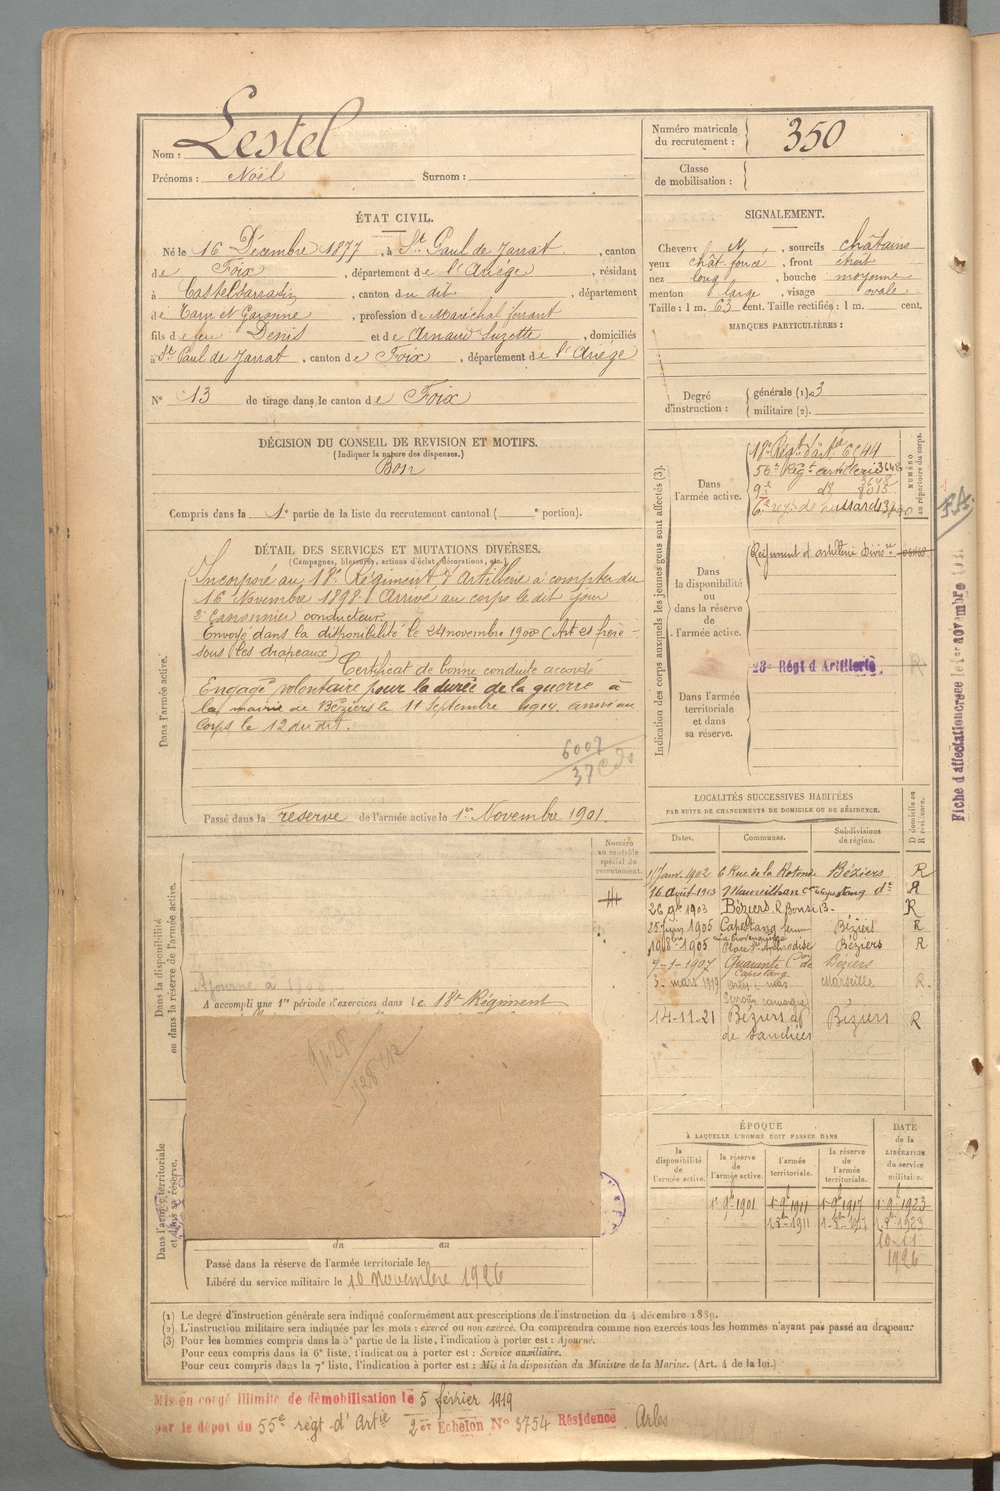 Nom : Lestel
Prénoms : Noël Surnom :
Numéro matricule
du recrutement : 350
Classe
de mobilisation :
ÉTAT CIVIL.
Né le 16 Décembre 1877, à St Paul de Jarrat, canton
de Foix, département de l'Ariège, résidant
à Castelsarrasin, canton du dit, département
de Tarn et Garonne, profession de Maréchal ferrant
fils de feu Denis et de Arnaud Suzette, domiciliés
à St Paul de Jarrat, canton de Foix, département de l'Ariège
N° 13 de tirage dans le canton de Foix
SIGNALEMENT.
Cheveux N, sourcils châtains
yeux chât. foncé, front étroit
nez long, bouche moyenne
menton large, visage ovale
Taille : 1 m. 63 cent. Taille rectifiée : 1 m. cent.
MARQUES PARTICULIÈRES :
Degré
d'instruction :
générale (1) 3
militaire (2).
DÉCISION DU CONSEIL DE REVISION ET MOTIFS.
(Indiquer la nature des dispenses.)
Bon
Compris dans la 1e partie de la liste du recrutement cantonal ( e portion).
DÉTAIL DES SERVICES ET MUTATIONS DIVERSES.
(Campagnes, blessures, actions d'éclat, décorations, etc.)
Dans l'armée active.
Incorporé au 18e Régiment d'Artillerie à compter du
16 Novembre 1898. Arrivé au corps le dit jour
2e Canonnier conducteur.
Envoyé dans la disponibilité le 24 novembre 1900 (Art 21 frère
sous les drapeaux)
Certificat de bonne conduite accordé
Engagé volontaire pour la durée de la guerre à
la mairie de Béziers le 11 Septembre 1914. arrivé au
Corps le 12 du dit.
6007
37
Passé dans la réserve de l'armée active le 1er Novembre 1901.
Indication des corps auxquels les jeunes gens sont affectés (3).
NUMÉRO
au répertoire du corps.
Dans
l'armée active.
18e Régt d'art 6644
56e Régt artillerie 3648
9e do
6e reg. de hussards
Dans
la disponibilité
ou
dans la réserve
de
l'armée active.
Régiment d'artillerie
28e Régt d'Artillerie
Dans l'armée
territoriale
et dans
sa réserve.
F.A.
Fiche d'affectation créée le 1er novembre
LOCALITÉS SUCCESSIVES HABITÉES
PAR SUITE DE CHANGEMENTS DE DOMICILE OU DE RÉSIDENCE.
Dates. Communes. Subdivisions
de région. D domicile ou
R résidence.
1 Janv. 1902 6 Rue de la Rotonde Béziers R
16 Août 1903 Maureilhan con Capestang do R
26 9bre 1903 Béziers R. R
25 Juin 1905 Capestang Béziers R
19 8bre 1905 Place Béziers R
9-1-1907 Quarante Con de
Capestang Béziers
5 mars 1919 Marseille R
14-11-21 Béziers Béziers R
Numéro
au contrôle
spécial du
recrutement.
Dans la disponibilité
ou dans la réserve de l'armée active.
Ajourné à
A accompli une 1re période d'exercices dans le 18e Régiment
Dans l'armée territoriale
et dans sa réserve.
du au
Passé dans la réserve de l'armée territoriale le
Libéré du service militaire le 10 Novembre 1926
ÉPOQUE
À LAQUELLE L'HOMME DOIT PASSER DANS
DATE
de la
LIBÉRATION
du service
militaire.
la
disponibilité
de
l'armée active. la réserve
de
l'armée active. l'armée
territoriale. la réserve
de
l'armée
territoriale.
1-9bre 1901 1-9bre 1911 1-9bre 1917 1-9bre 1923
1-8bre 1911 1-8bre 1917 1-8bre 1923
10-11
1926
(1) Le degré d'instruction générale sera indiqué conformément aux prescriptions de l'instruction du 4 décembre 1889.
(2) L'instruction militaire sera indiquée par les mots : exercé ou non exercé. On comprendra comme non exercés tous les hommes n'ayant pas passé au drapeau.
(3) Pour les hommes compris dans la 5e partie de la liste, l'indication à porter est : Ajourné.
Pour ceux compris dans la 6e liste, l'indication à porter est : Service auxiliaire.
Pour ceux compris dans la 7e liste, l'indication à porter est : Mis à la disposition du Ministre de la Marine. (Art. 4 de la loi.)
Mis en congé illimité de démobilisation le 5 février 1919
par le dépôt du 55e régt d'Artie 2er Echelon N° 3754 Résidence Arles